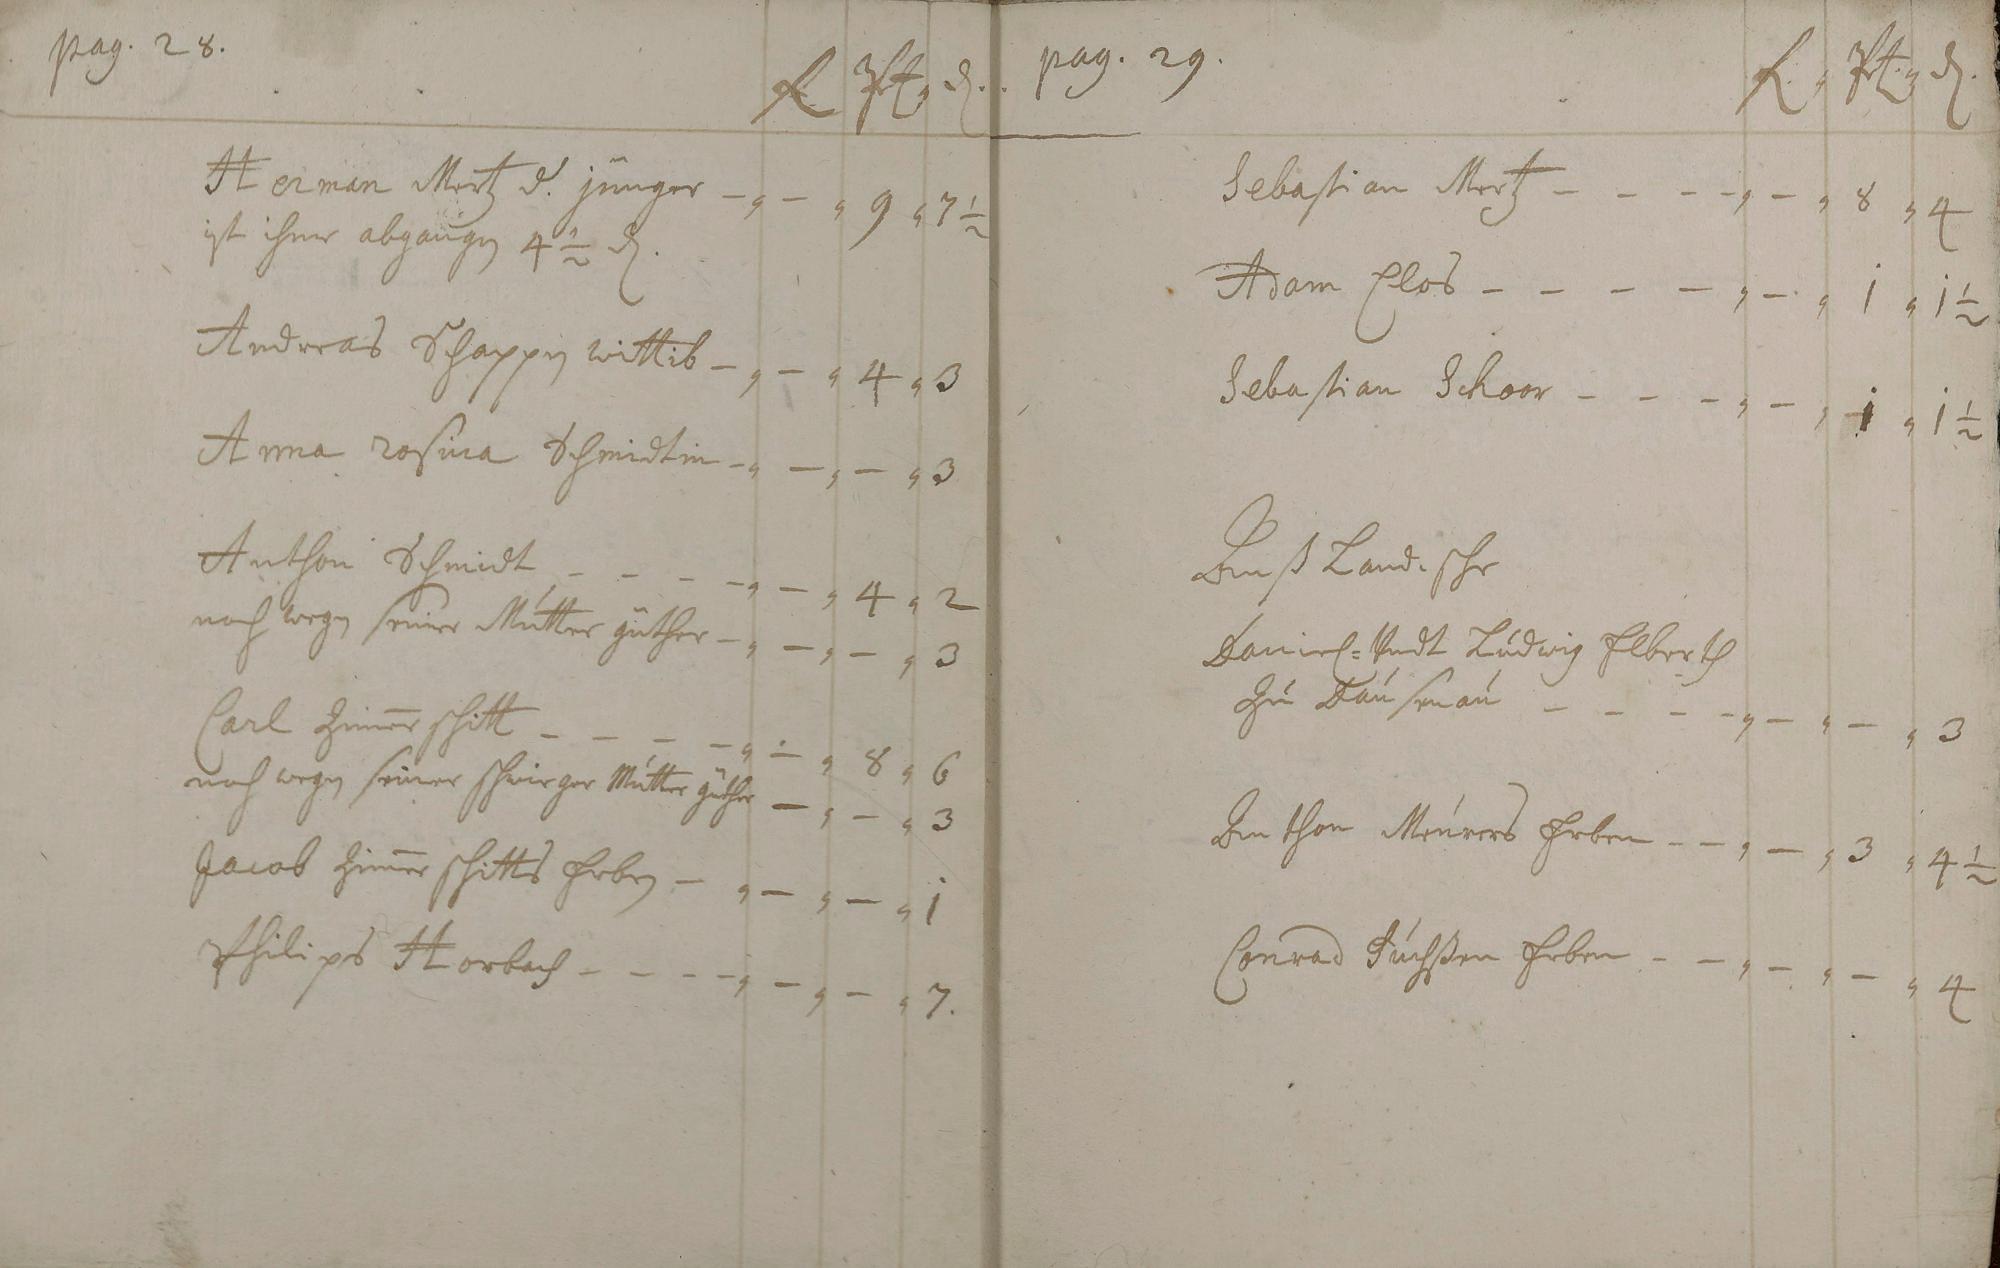 pag. 28.
fl. „ Pft. „ ₰.
Herman Mertz d. jünger - „ - „ 9 „ 7 1/2
ist ihme abgangen 4 1/2 ₰.
Andreas Schappen wittib - „ - „ 4 „ 3
Anna rosina Schmidtin - „ - „ - „ 3
Anthon Schmidt - - - - „ - „ 4 „ 2
noch wegen seiner Mutter güther - „ - „ - „ 3
Carl Zimerschitt - - - - „ - „ 8 „ 6
noch wegen seiner schwieger Mutter güther - „ - „ 3
Jacob Zimerschitts Erben - „ - „ - „ 1
Philips Horbach - - - - „ - „ - „ 7.
pag. 29.
fl. „ Pft. „ ₰.
Sebastian Mertz - - - - „ - „ 8 „ 4
Adam Clos - - - - „ - „ 1 „ 1 1/2
Sebastian Schoor - - - „ - „ 1 „ 1 1/2
Auß Landische
Daniel Ludwig Elberth
Zu Dausenau - - - - „ - „ - „ 3
Anthon Meurers Erben - - „ - „ 3 „ 4 1/2
Conrad Fuchßen Erben - - „ - „ - „ 4